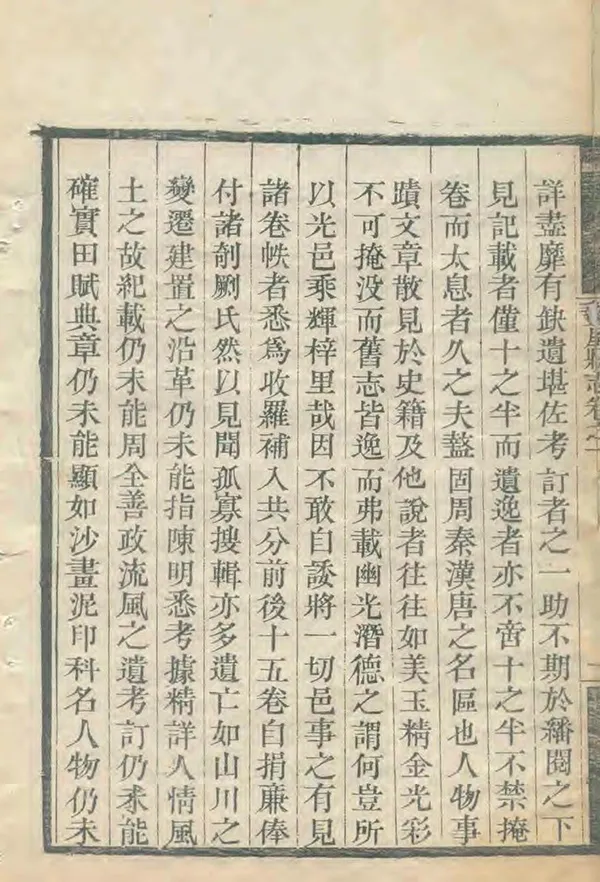 詳盡靡有缺遺堪佐考訂者之一助不期於繙閱之下
見記載者僅十之半而遺逸者亦不啻十之半不禁掩
卷而太息者久之夫盩固周秦漢唐之名區也人物事
蹟文章散見於史籍及他說者往往如美玉精金光彩
不可掩没而舊志皆逸而弗載幽光潛德之謂何豈所
以光邑乘輝梓里哉因不敢自諉將一切邑事之有見
諸卷帙者悉爲收羅補入共分前後十五卷自捐廉俸
付諸剞劂氏然以見聞孤寡搜輯亦多遺亡如山川之
變遷建置之沿革仍未能指陳明悉考據精詳人情風
土之故紀載仍未能周全善政流風之遺考訂仍未能
確實田賦典章仍未能顯如沙畫泥印科名人物仍未
縣志卷之